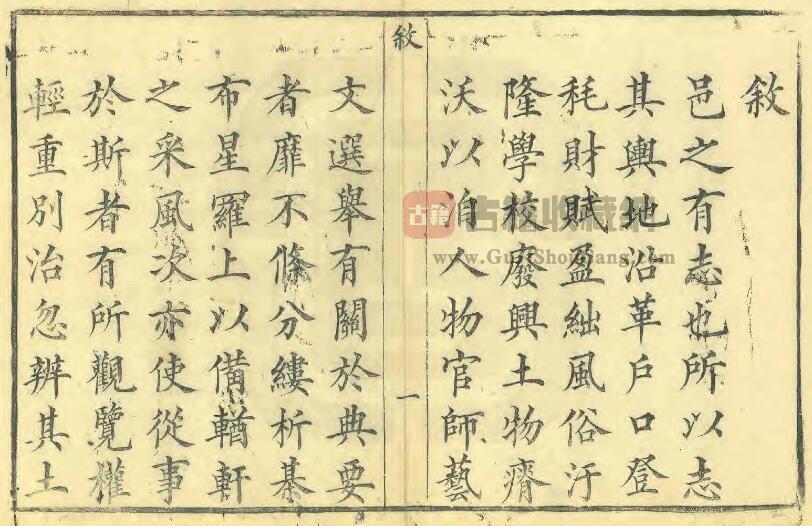 敘
邑之有志也所以志
其輿地沿革戶口登
秏財賦盈絀風俗汙
隆學校廢興土物瘠
沃以洎人物官師藝
敘
一
文選舉有關於典要
者靡不條分縷析棊
布星羅上以備輶軒
之采風次亦使從事
於斯者有所觀覽權
輕重別治忽辨其土
古籍
古籍收藏網
www.GuJiShouCang.com